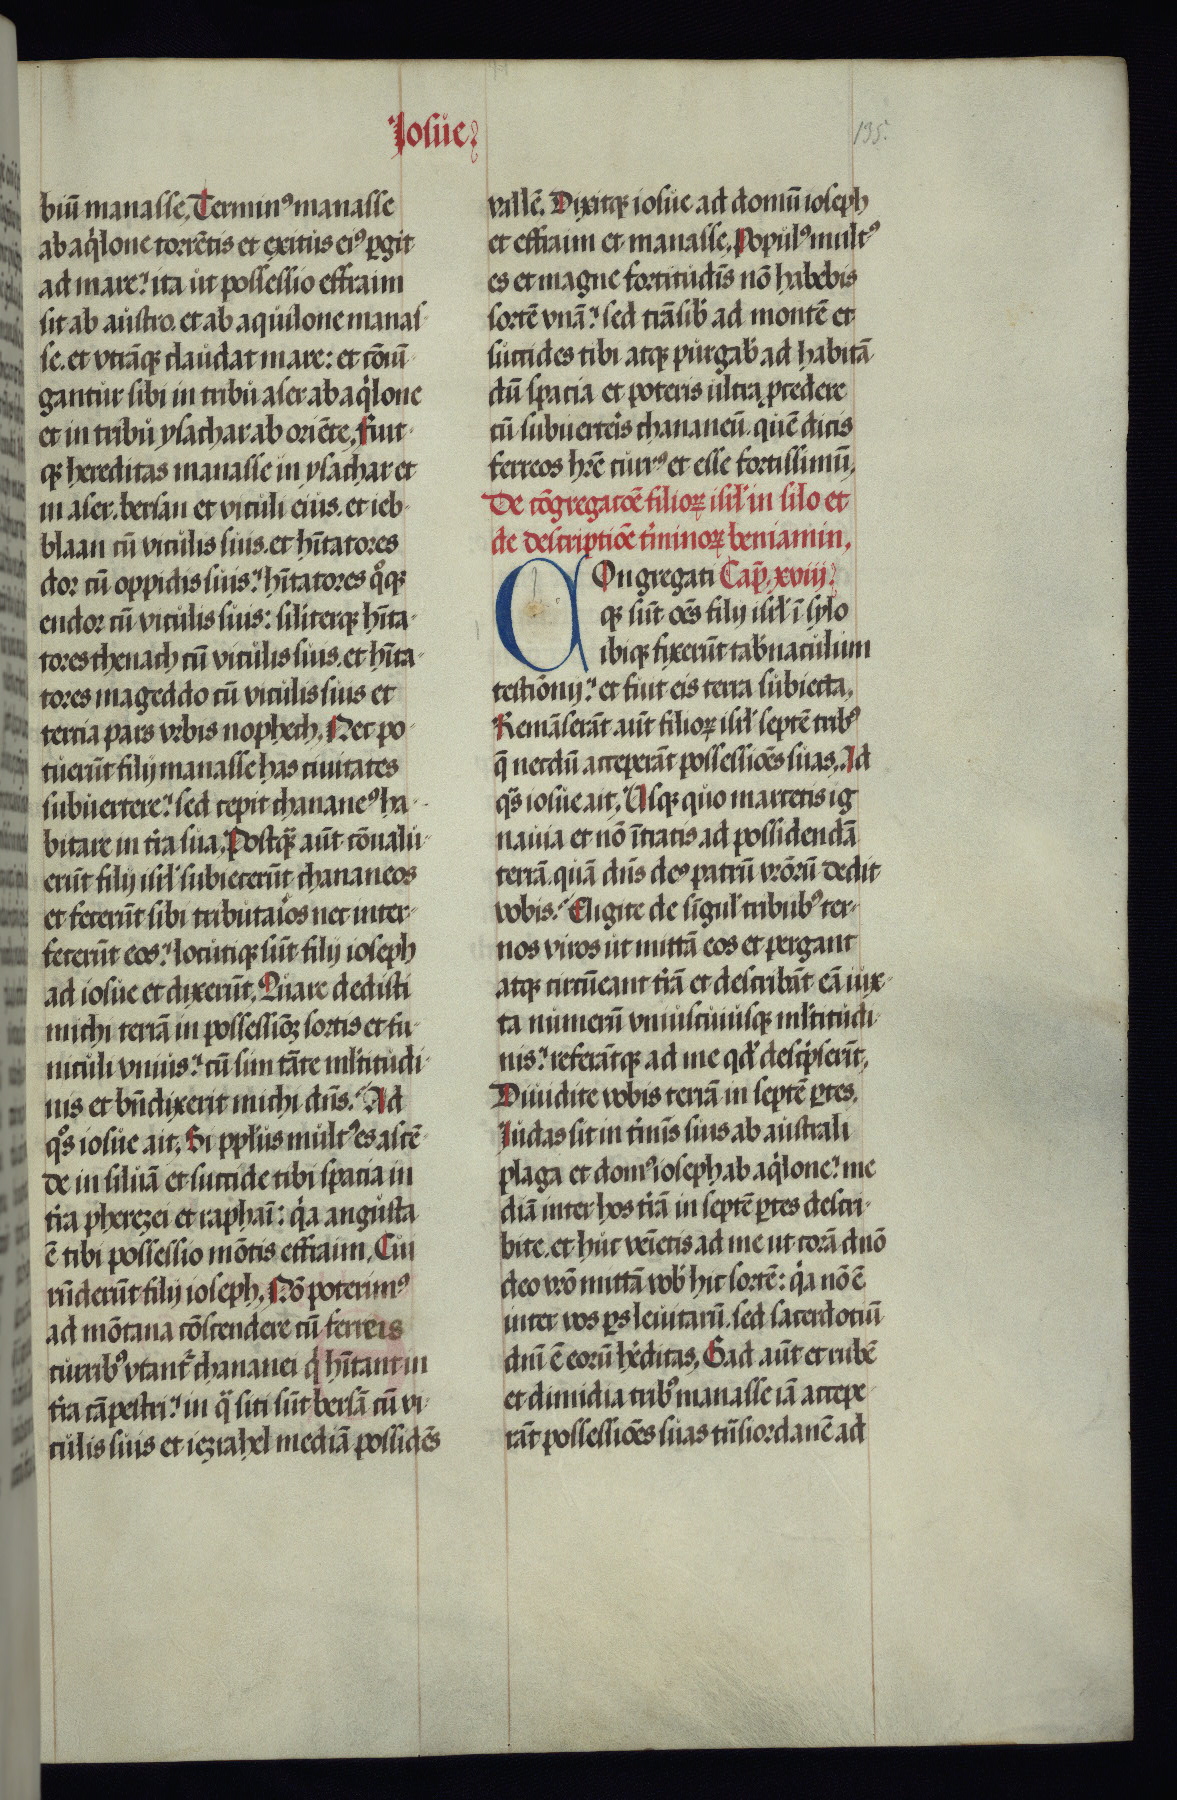 Iosue
195.
biū manasse. Terminꝰ manasse
ab aq̇lone torrētis et exitus eiꝰ ꝑgit
ad mare: ita ut possessio effraim
sit ab austro. et ab aquilone manas
se. et vtrāqꝫ claudat mare: et cōiū
gantur sibi in tribu aser ab aq̇lone
et in tribu ysachar ab oriēte. Fuit
qꝫ hereditas manasse in ysachar et
in aser. bersan et viculi eius. et ieb
blaan cū viculis suis. et hītatores
dor cū oppidis suis: hītatores qͦqꝫ
endor cū viculis suis: siliterqꝫ hīta
tores thenach cū viculis suis. et hīta
tores mageddo cū viculis suis et
tercia pars vrbis nophech. Nec po
tuerūt filij manasse has ciuitates
subuertere: sed cepit chananeꝰ ha
bitare in t̄ra sua. Postqᷓ aūt cōualu
erūt filij isrl̄ subiecerūt chananeos
et fecerūt sibi tributaⁱos nec inter
fecerūt eos: locutiqꝫ sūt filij ioseph
ad iosue et dixerūt. Quare dedisti
michi terrā in possessiōꝫ sortis et fu
niculi vnius: cū sim tāte ml̄titudi
nis et bn̄dixerit michi dn̄s. Ad
qͦs iosue ait. Si ppl̄us multꝰ es ascē
de in siluā et succide tibi spacia in
t̄ra pherezei et raphaī: q̇a angusta
ē tibi possessio mōtis effraim. Cui
rn̄derūt filij ioseph. Nō poterimꝰ
ad mōtana cōscendere cū ferreis
curribꝰ vtant᷑ chananei q̇ hītant in
t̄ra cāpestri: in qᷓ siti sūt bersā cū vi
culis suis et iezrahel mediā possidēs
vallē. Dixitqꝫ iosue ad domū ioseph
et effraim et manasse. Populꝰ multꝰ
es et magne fortitudīs nō habebis
sortē vnā: sed trāsib̄ ad montē et
succides tibi atqꝫ purgab̄ ad habitā
dū spacia et poteris ultra ꝓcedere
cū subuerteⁱs chananeū quē dicis
ferreos hr̄e currꝰ et esse fortissimū.
De cōgregacōe filioꝝ isrl̄ in silo et
de descriptiōe t̄minoꝝ beniamin.
COngregati Cap̄. xviij.
qꝫ sūt oēs filij isrl̄ ī sylo
ibiqꝫ fixerūt tab̄naculum
testiōnij: et fuit eis terra subiecta.
Remāserāt aūt filioꝝ isrl̄ septē tribꝰ
q̄ necdū acceperāt possessiōes suas. Ad
qͦs iosue ait. Usqꝫ quo marcetis ig
nauia et nō ītratis ad possidendā
terrā. quā dn̄s deꝰ patrū vr̄orū dedit
vobis. Eligite de sīgul̄ tribubꝰ ter
nos viros ut mittā eos et pergant
atqꝫ circūeant t̄rā et describāt eā iux
ta numerū vniuscuiusqꝫ ml̄titudi
nis: referātqꝫ ad me qd̄ desc̍pserīt.
Diuidite vobis terrā in septē ꝑtes.
Iudas sit in t̄mīs suis ab australi
plaga et domꝰ ioseph ab aq̇lone: me
diā inter hos t̄rā in septē ꝑtes descri
bite. et huc veīetis ad me ut corā dn̄o
deo vr̄o mittā vob̄ hic sortē: q̇a nō ē
inter vos ꝑs leuitarū. sed sacerdotiū
dn̄i ē eorū h̄editas. Gad aūt et rubē
et dimidia tribꝰ manasse iā accepe
rāt possessiōes suas trn̄siordanē ad